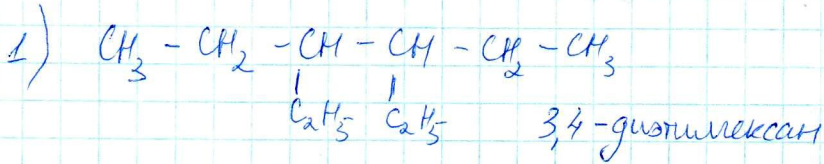 1) CH₃ - CH₂ - CH - CH - CH₂ - CH₃
C₂H₅ C₂H₅ 3,4-диэтилгексан